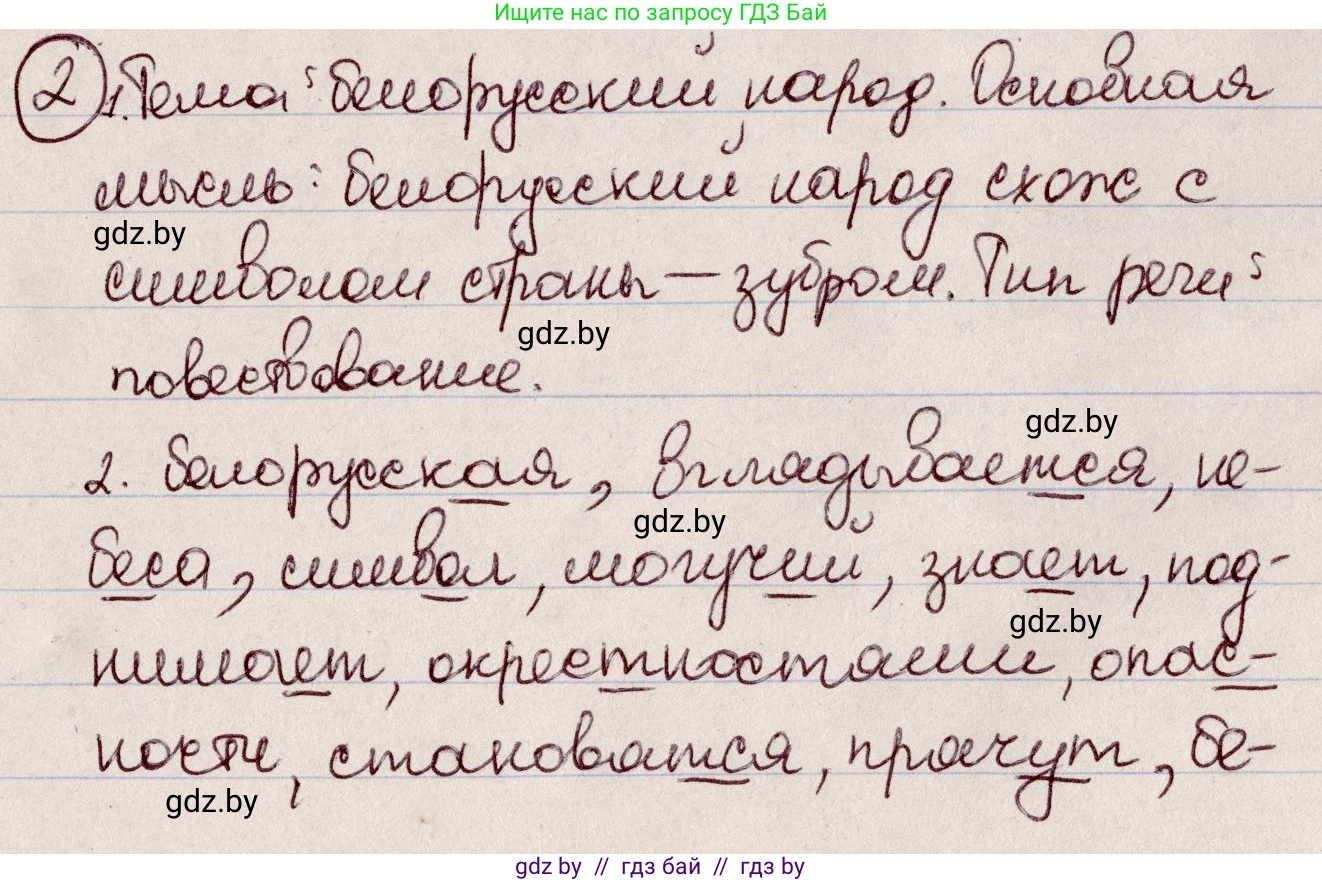 Ищите нас по запросу ГДЗ Бай
2 1. Тема: белорусский народ. Основная
мысль: белорусский народ схож с
gdz.by
символом страны — зубром. Тип речи:
gdz.by
повествование.
gdz.by
2. белорусская, вглядывается, не-
gdz.by
беса, символ, могучий, знает, под-
gdz.by
нимает, окрестностями, опас-
ности, становятся, прячут, бе-
gdz.by
gdz by // гдз бай // gdz by